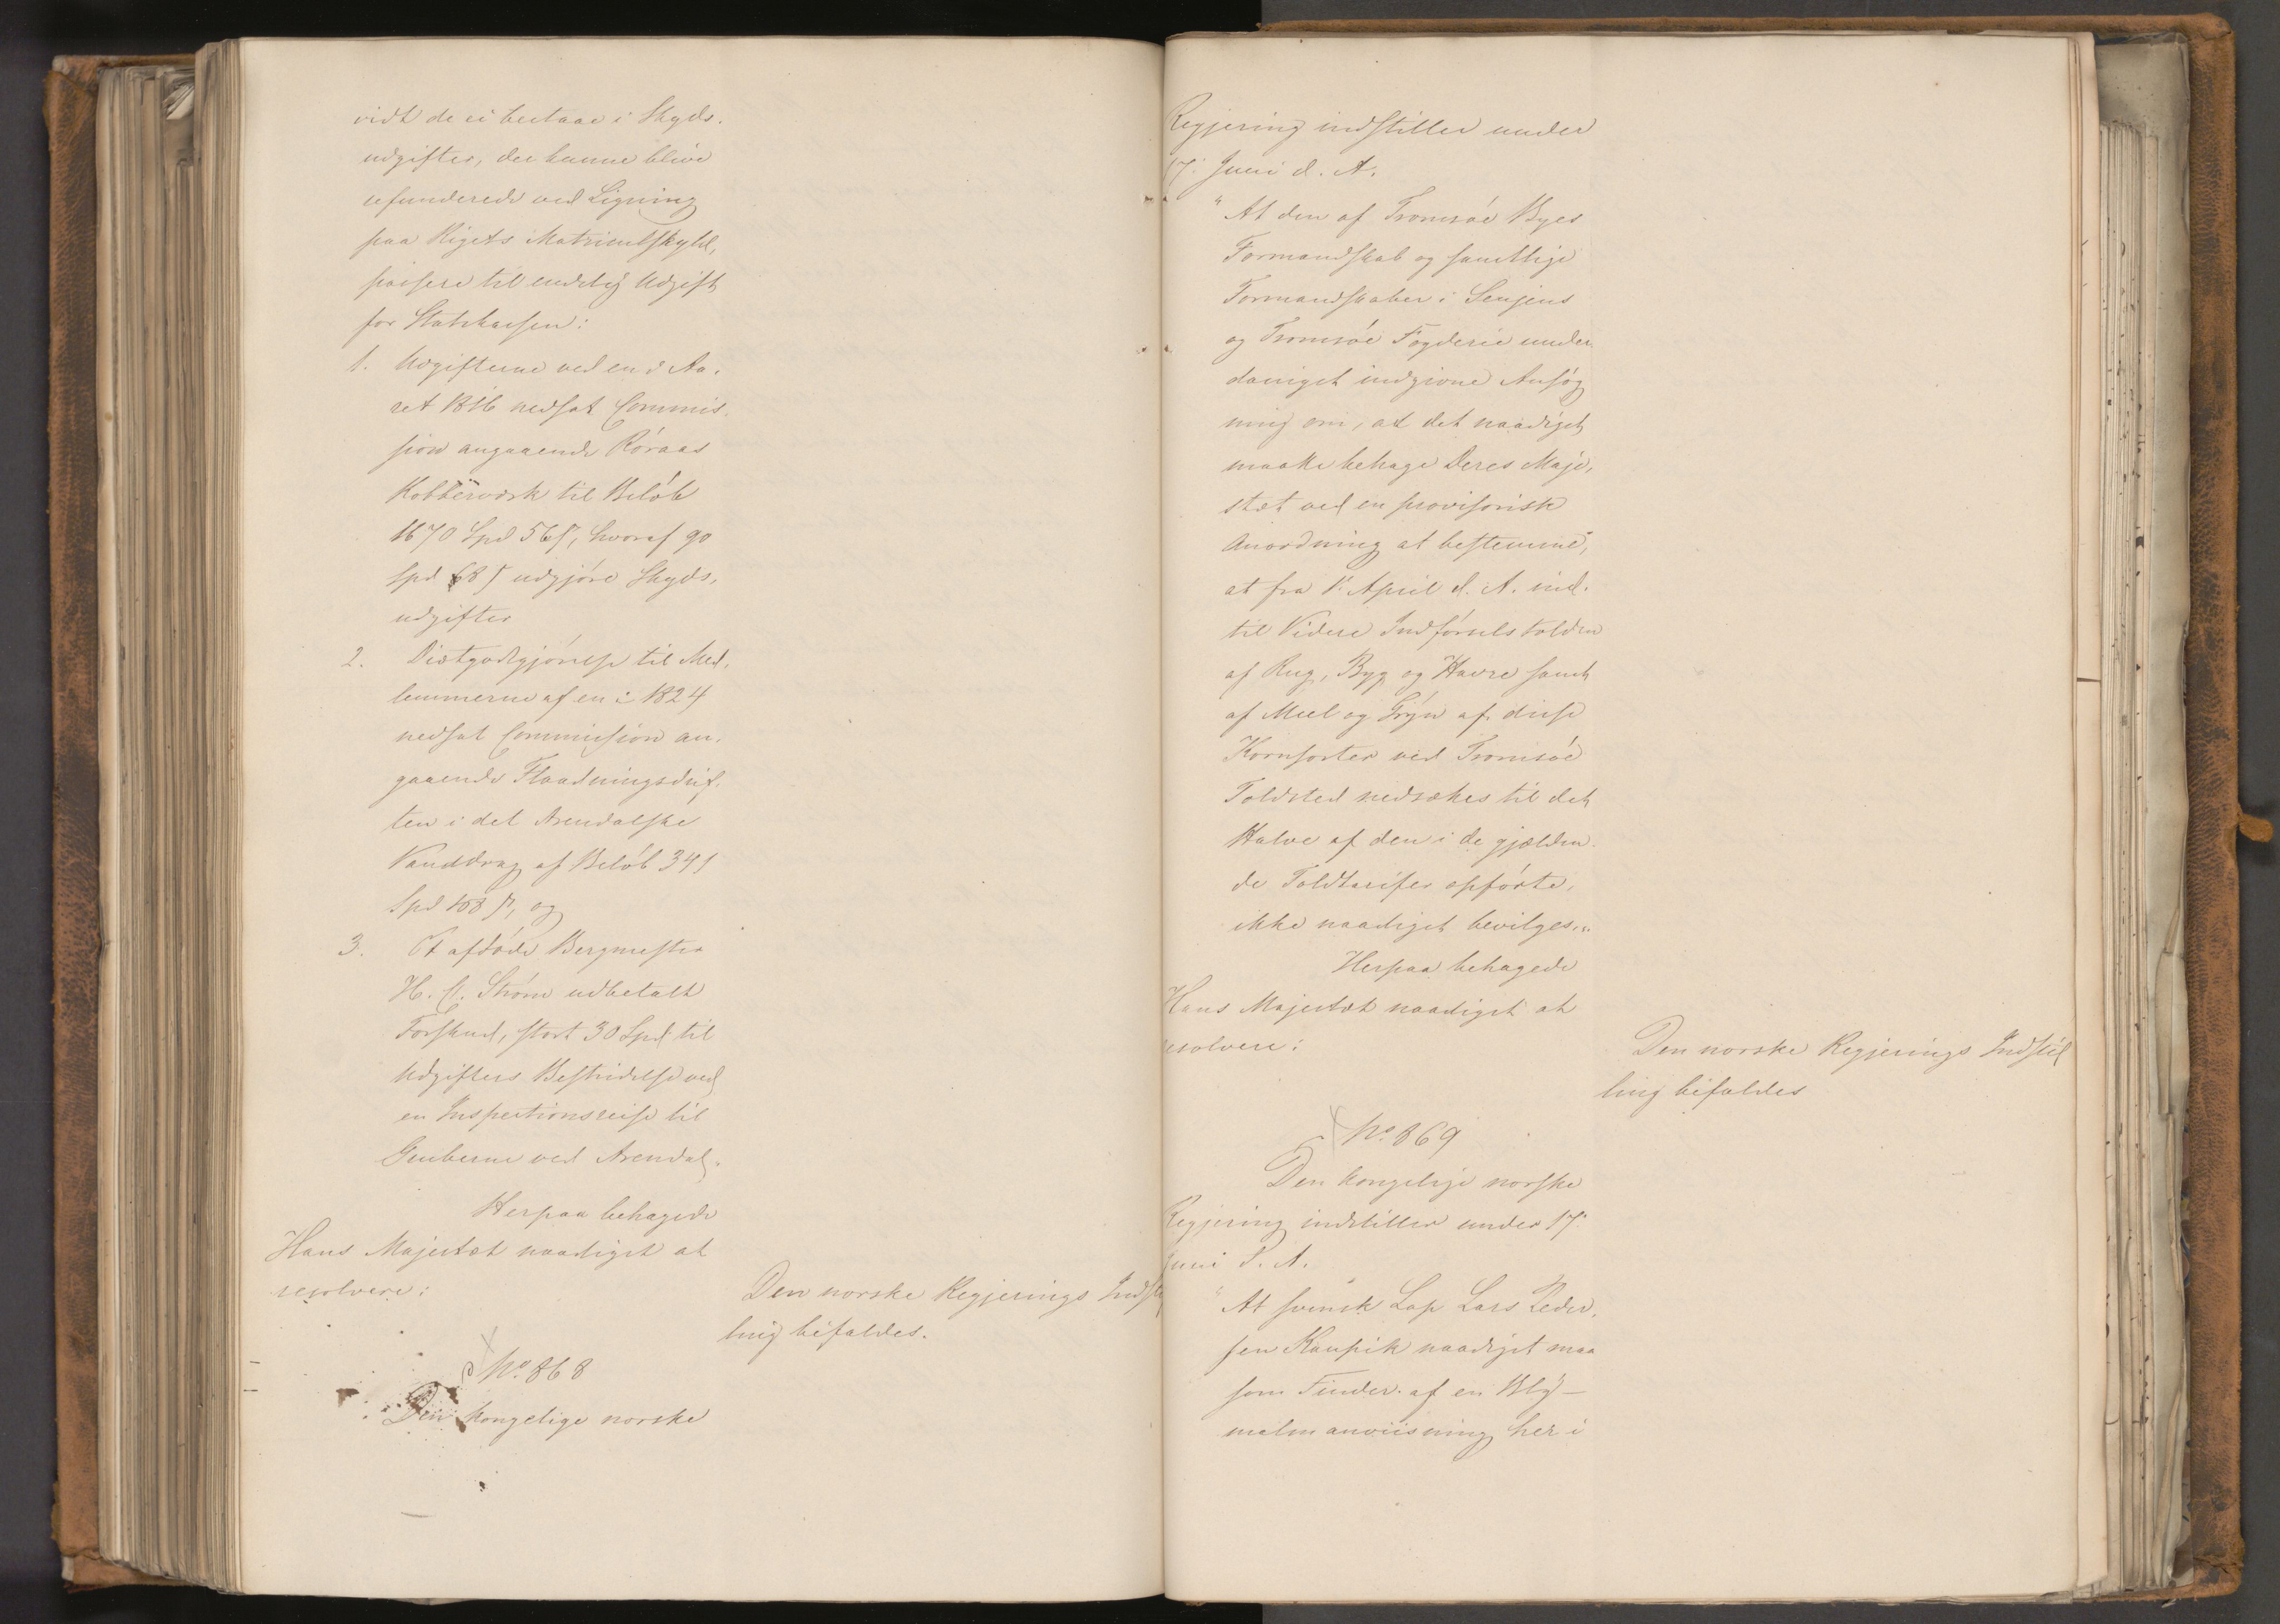 vidt de ei bestaae i Skyds-
udgifter, der kunne blive
refunderede ved Ligning
paa Rigets Matriculskyld,
passere til endelig Udgift
for Statskassen:
1. Udgifterne ved en i Aa-
ret 1816 nedsat Commis-
sion angaaende Röraas
Kobberværk til Beløb
1670 Spd 56 s, hvoraf 90
Spd 68 s udgjøre Skyds-
udgifter
2. Diætgodtgjørelse til Med-
lemmerne af en i 1824
nedsat Commission an-
gaaende Flaadningsdrif-
ten i det Arendalske
Vanddrag af Beløb 341
Spd 108 s, og
3. Et afdøde Bergmester
H. C. Strøm udbetalt
Forskud, stort 30 Spd til
Udgifters Bestridelse ved
en Inspectionsreise til
Gruberne ved Arendal.
Herpaa behagede
Hans Majestæt naadigst at
resolvere:
Den norske Regjerings Indstil
ling bifaldes.
No. 868
Den kongelige norske
Regjering indstiller under
17. Juni d. A.
"At den af Tromsøe Byes
Formandskab og samtlige
Formandskaber i Senjens
og Tromsøe Fogderie under-
danigst indgivne Ansøg
ning om, at det naadigst
maatte behage Deres Maje-
stæt ved en provisorisk
Anordning at bestemme,
at fra 1. April d. A. ind-
til Videre Indførselstolden
af Rug, Byg og Havre samt
af Meel og Gryn af disse
Kornsorter ved Tromsøe
Toldsted nedsættes til det
Halve af den i de gjælden-
de Toldtarifer opførte,
ikke naadigst bevilges."
Herpaa behagede
Hans Majestæt naadigst at
resolvere:
Den norske Regjerings Indstil
ling bifaldes
No. 869
Den kongelige norske
Regjering indstiller under 17.
Juni d. A.
"At svensk Lap Lars Peder-
sen Kaupik naadigst maa
som Finder af en Bly-
malmanviisning her i